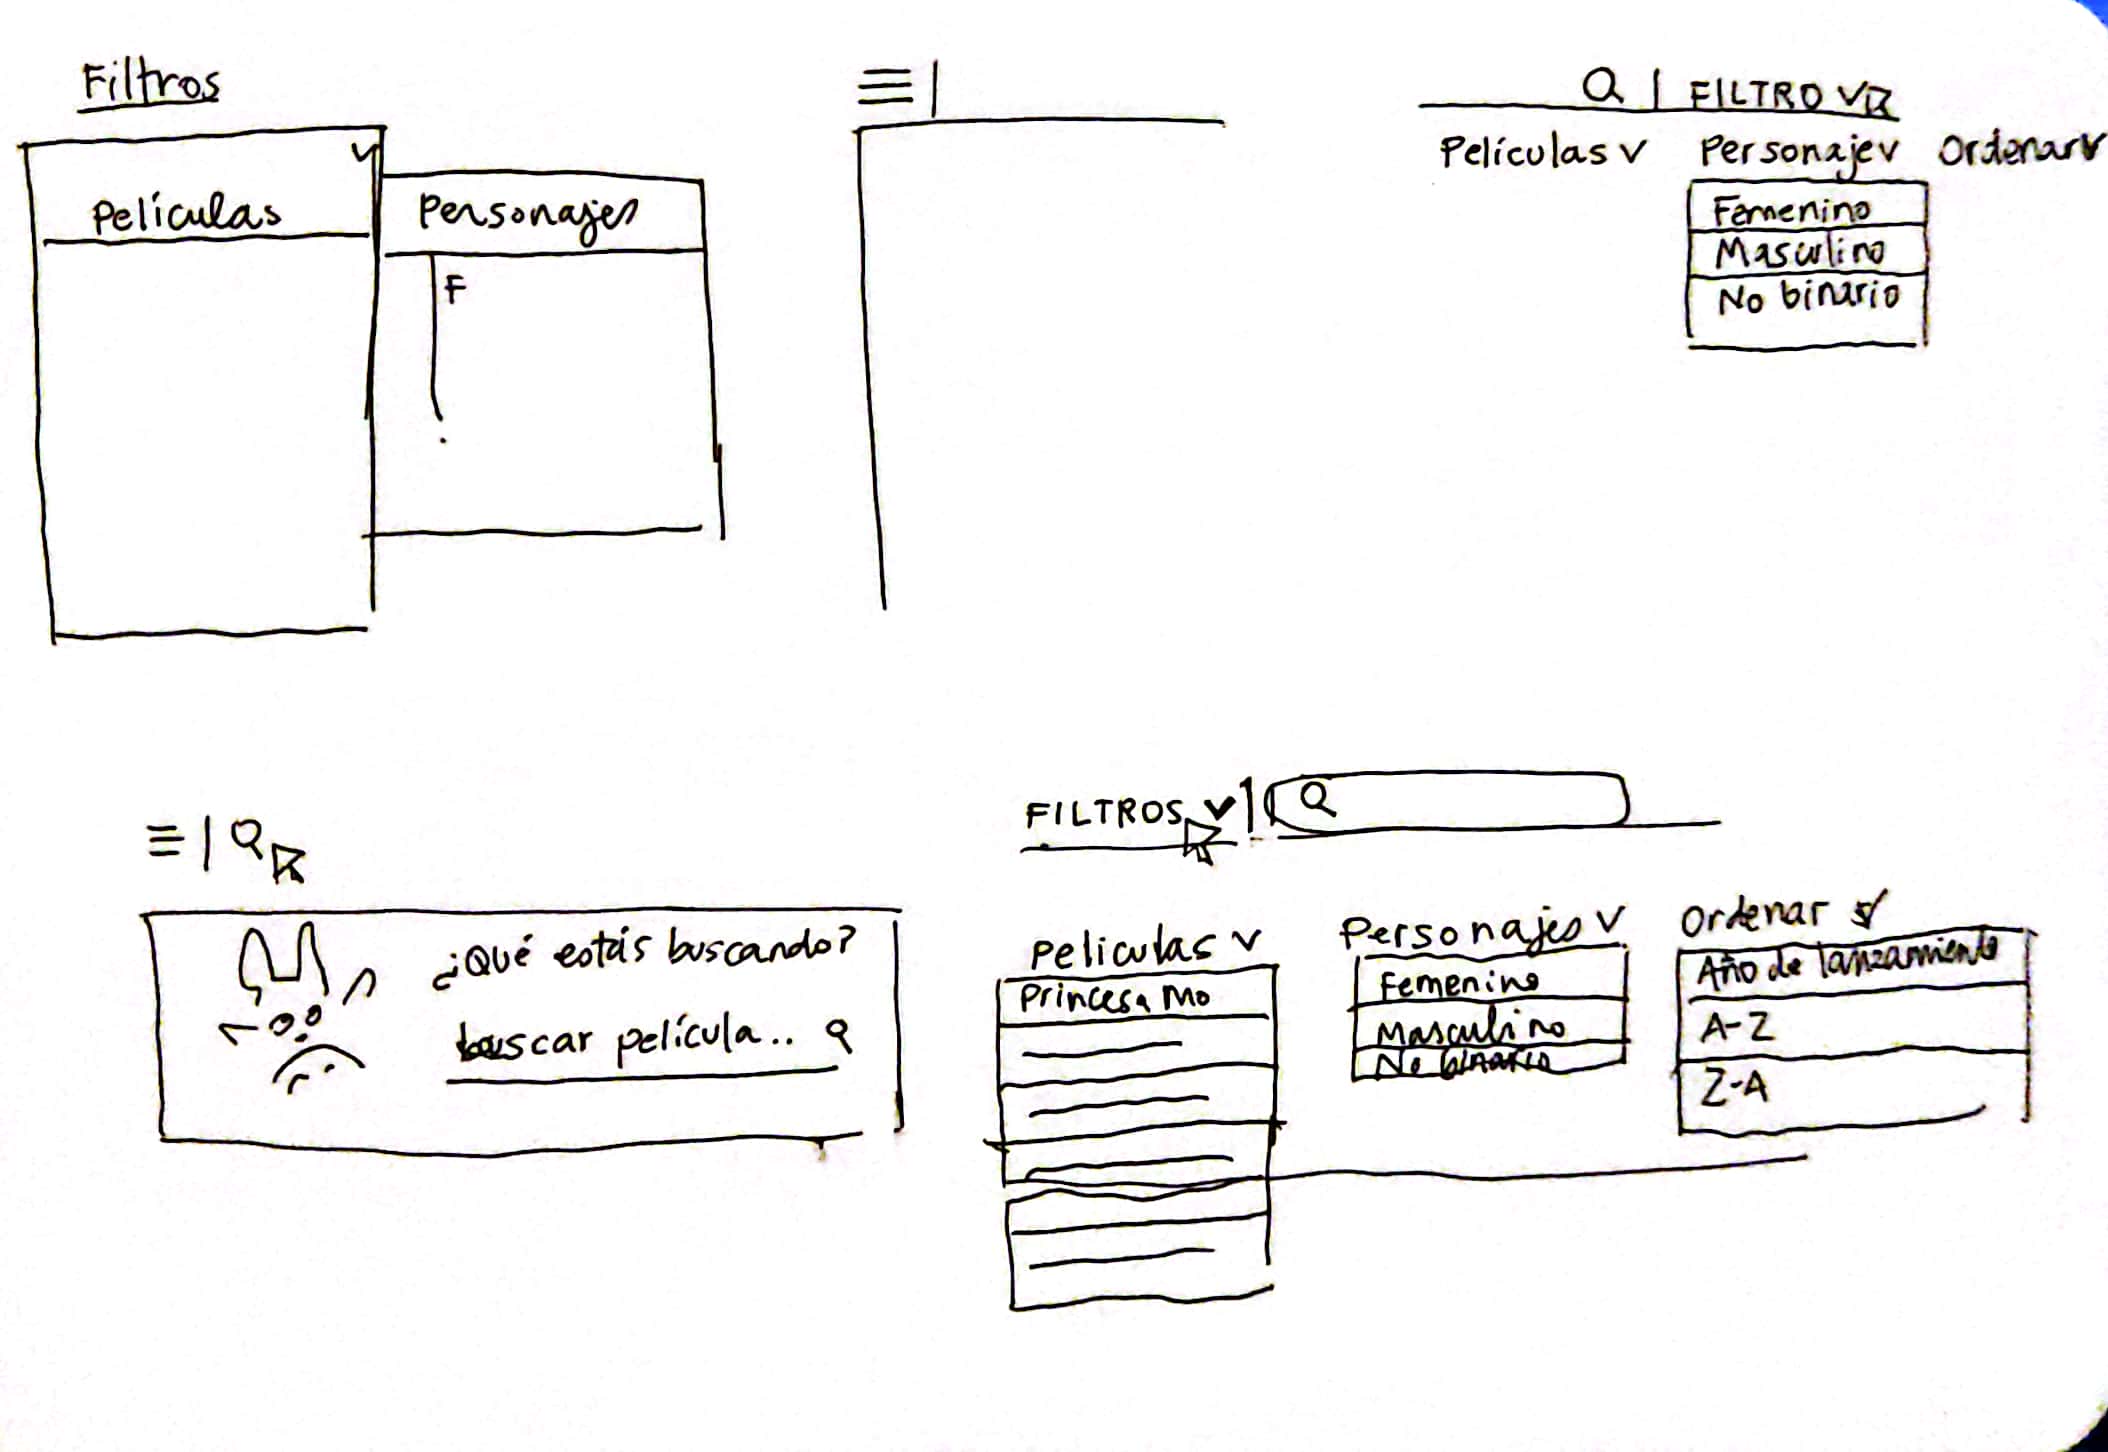 Filtros
Películas
Personajes
F
FILTRO
Películas
Personaje
Ordenar
Femenino
Masculino
No binario
¿Qué estás buscando?
buscar película..
FILTROS
Peliculas
Princesa Mo
Personajes
Femenino
Masculino
No binario
Ordenar
Año de lanzamiento
A-Z
Z-A